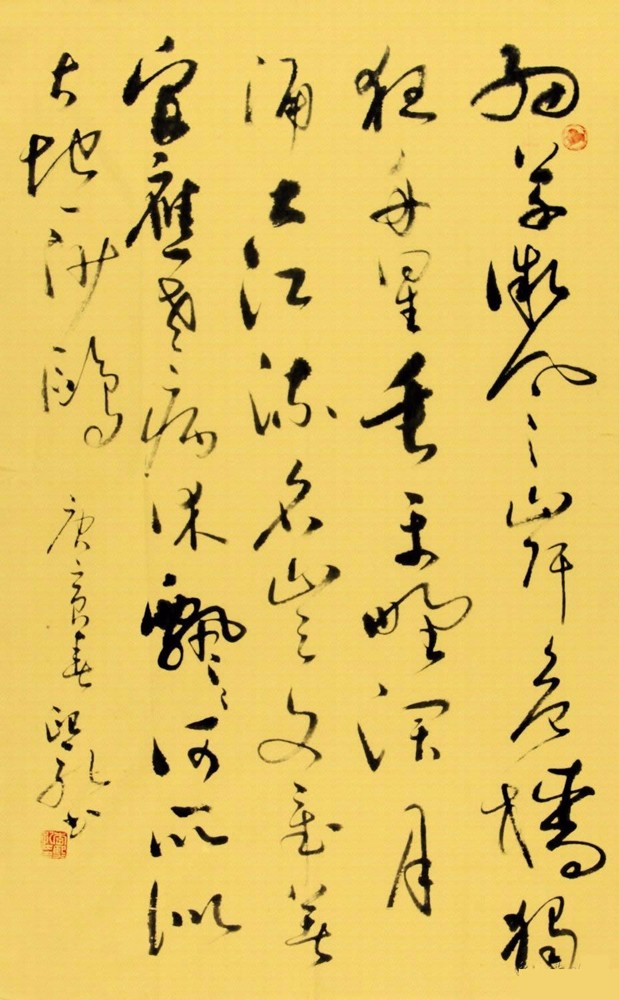 細草微风岸危樯獨
夜舟星垂平野阔月
涌大江流名岂文章著
官應老病休飄〻何所似
天地一沙鷗 庚寅春书